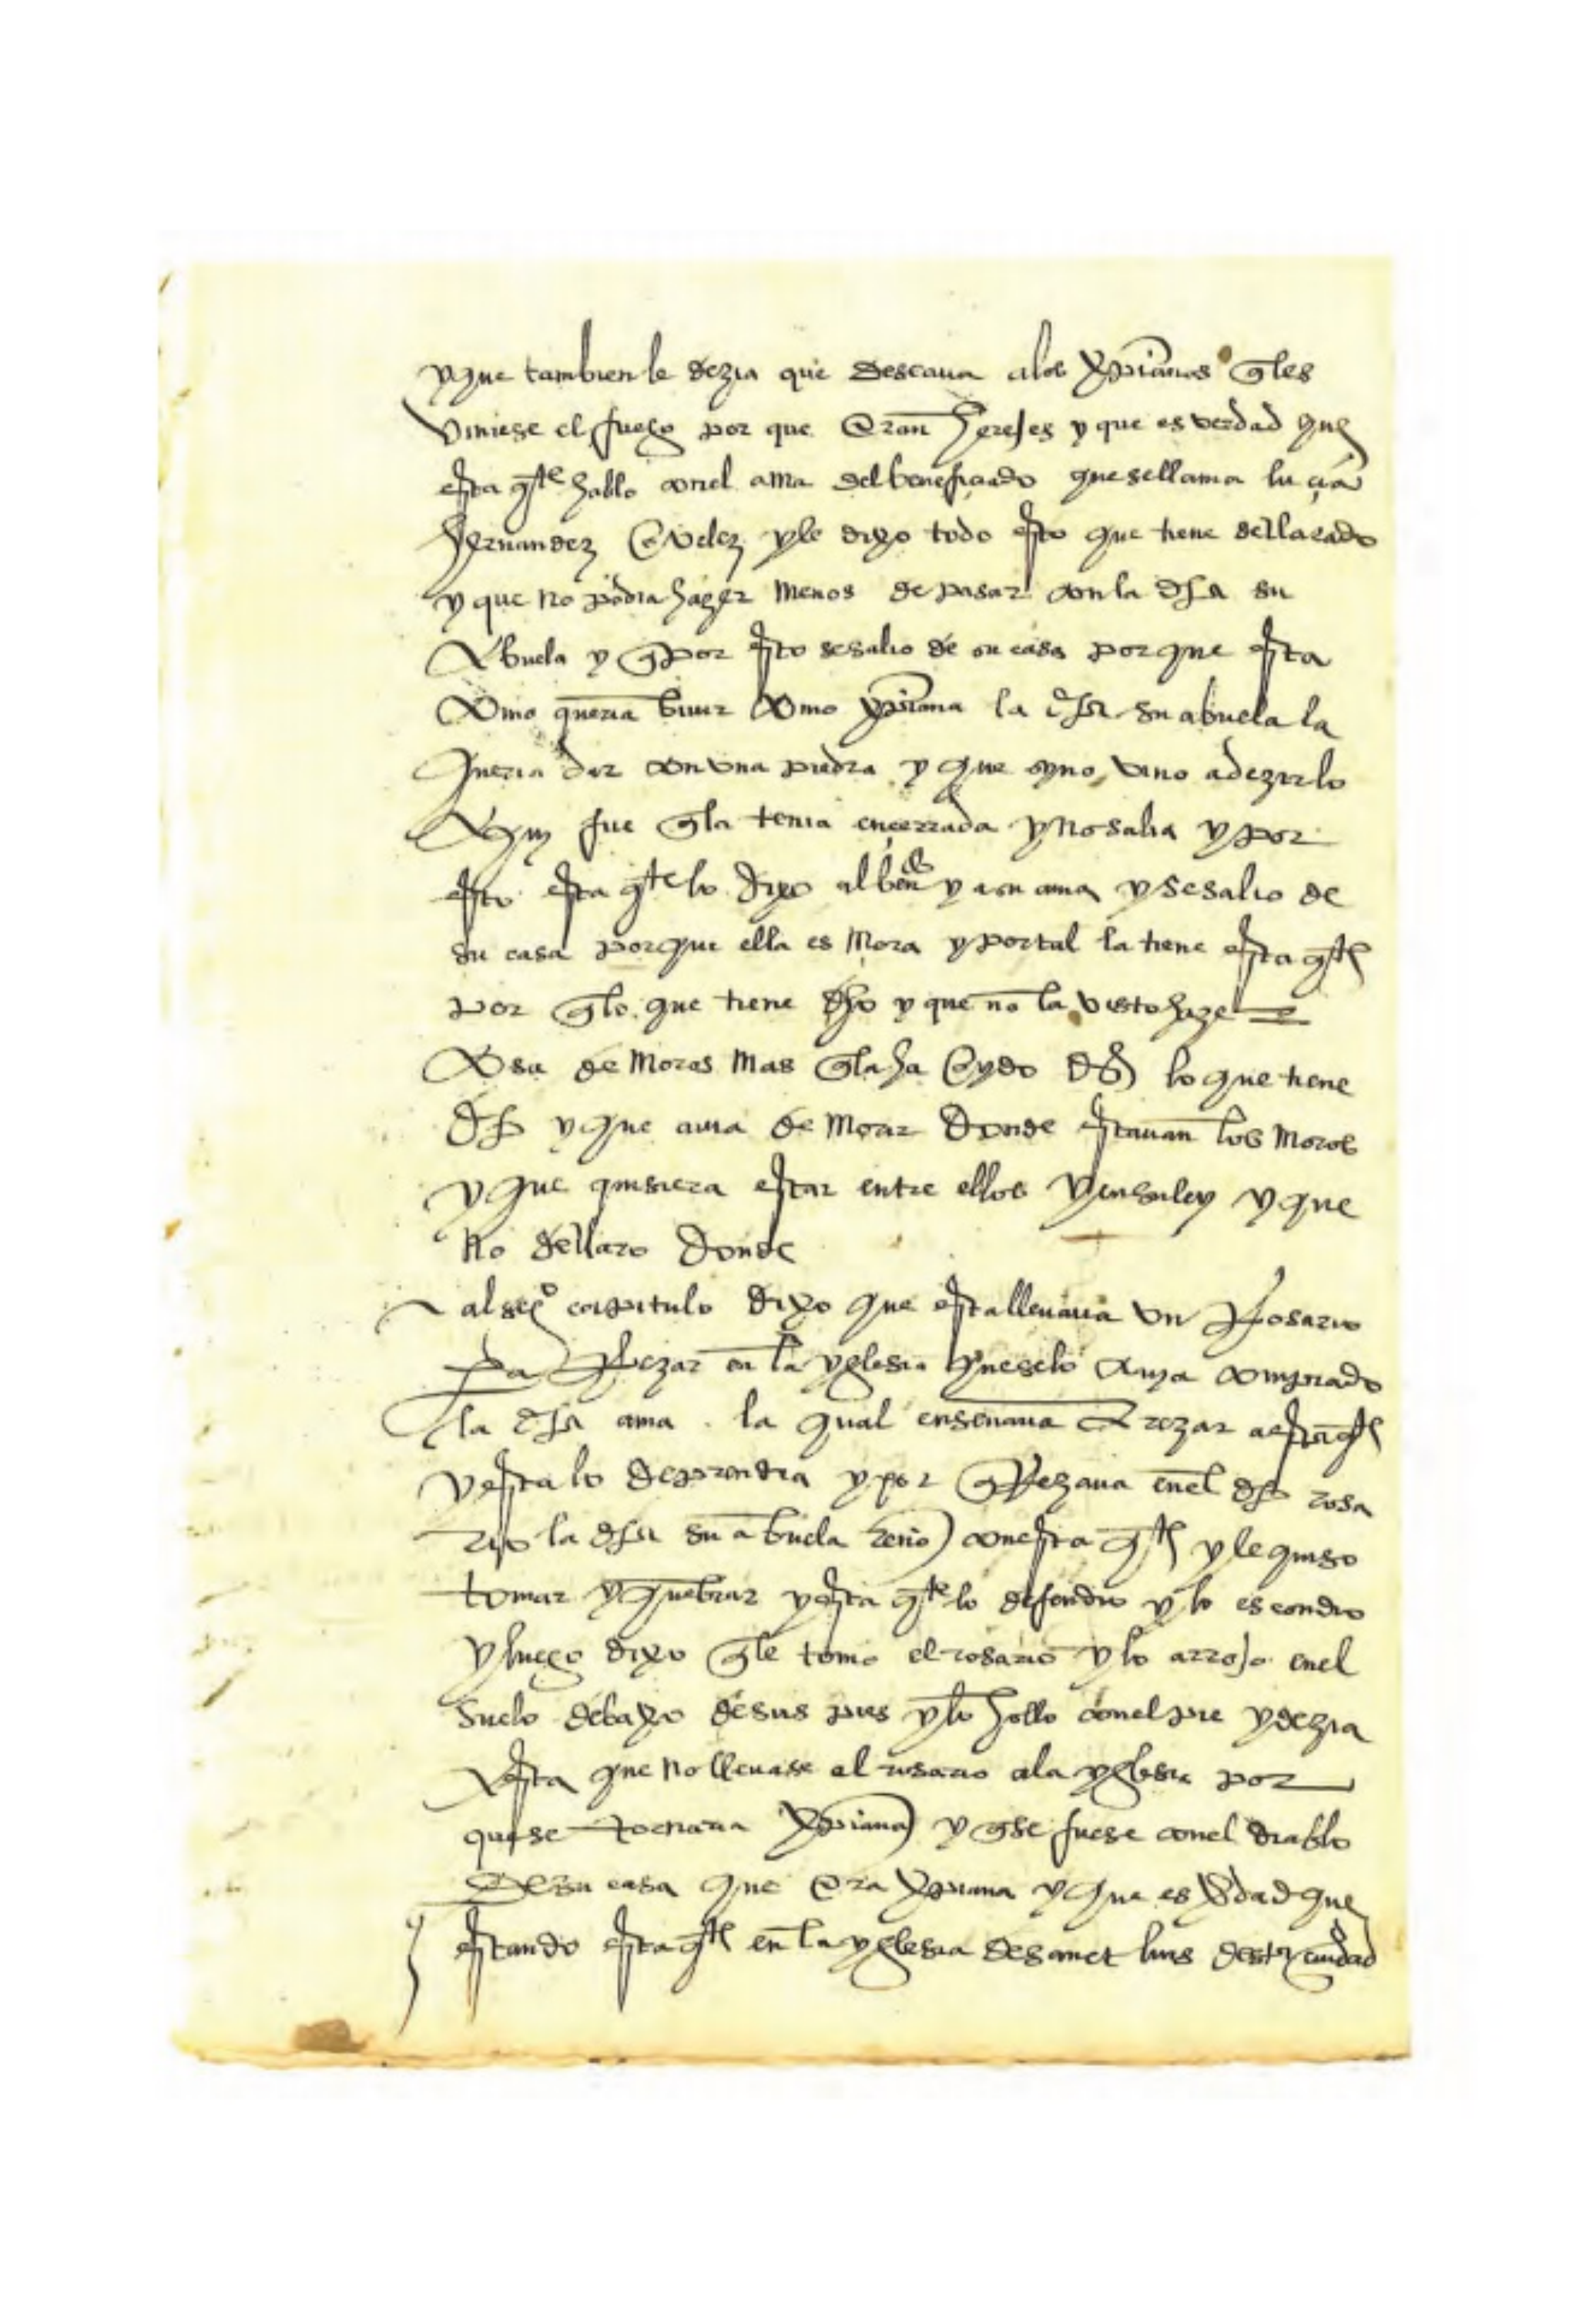 y que tambien le dezia que deseava a los xpianos q les
viniese el fuego por que eran herejes y que es verdad que
esta qte hablo con el ama del beneficiado que se llama lucia
hernandez en velez y le dixo todo esto que tiene declarado
y que no podia hazer menos de pasar con la dha su
abuela y q por esto se salio de su casa porque esta
como queria bivir como xpiana la dha su abuela la
queria dar con una piedra y que sy no vino a dezirlo
aqui fue q la tenia encerrada y no salia y por
esto esta qte lo dixo al ben do y a su ama y se salio de
su casa porque ella es mora y por tal la tiene esta qte
por q lo que tiene dho y que no la visto haze
cosa de moros mas q la ha oydo dezir lo que tiene
dho y que avia de morir donde estavan los moros
y que quisiera estar entre ellos y en su ley y que
no declaro donde
al seg o capitulo dixo que esta llevava un Rosario
pa Rezar en la yglesia que se lo avia comprado
la dha ama la qual enseñava a rezar a esta qte
y esta lo deprendia y por q Rezava en el dho rosa
rio la dha su abuela reño con esta qte y le quiso
tomar y quebrar y esta qte lo defendio y lo escondio
y luego dixo q le tomo el rosario y lo arrojo en el
suelo debaxo de sus pies y lo hollo con el pie y dezia
a esta que no llevase el rosario a la yglesia por
que se tornaria xpiana y q se fuese con el diablo
de su casa que era xpiana y que es vdad que
estando esta qte en la yglesia de sanct luis desta ciudad